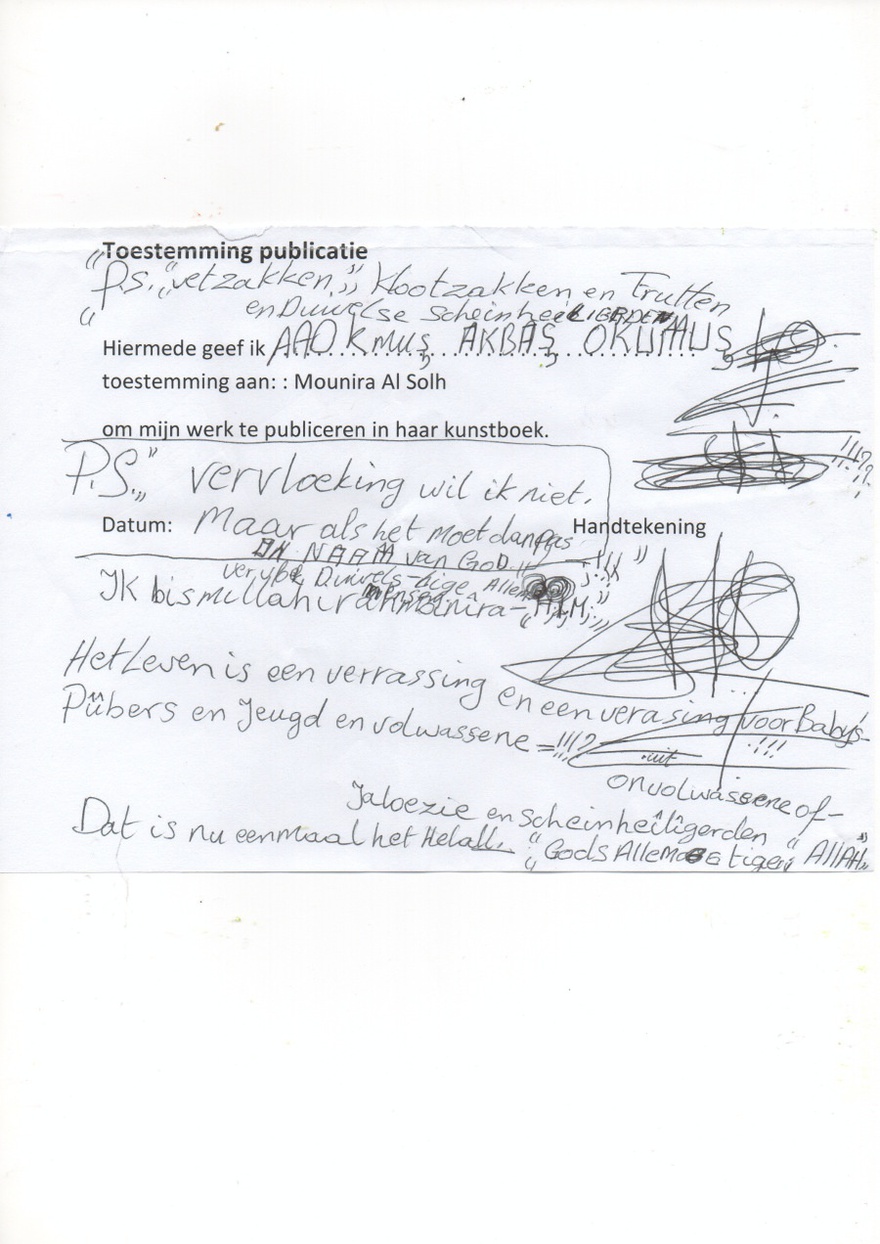 "Toestemming publicatie
P.S. "vetzakken," Klootzakken en Trutten
en Duivelse Scheinhei
Hiermede geef ik AKBAŞ,
toestemming aan: : Mounira Al Solh
om mijn werk te publiceren in haar kunstboek.
P.S." vervloeking wil ik niet.
Datum: Maar als het moet dan pas Handtekening
IN NAAM van GOD
IK
Het Leven is een verrassing en een verasing voor Baby's
Pübers en Jeugd en volwassene =!!!?
uit !!!
onvolwassene of-
Jaloezie en scheinheiligerden
Dat is nu eenmaal het "Gods "AllAH"